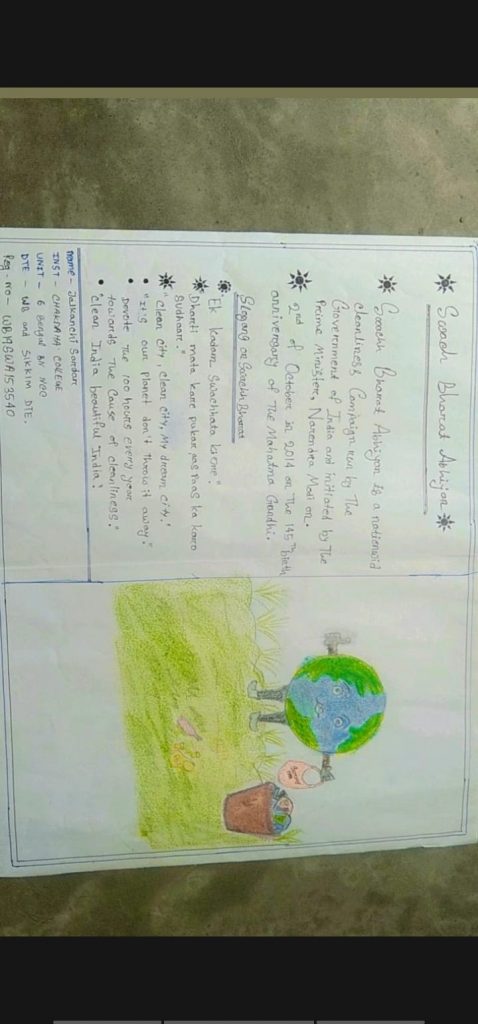 Swach Bharat Abhijan
Swachh Bharat Abhijan is a nationwid
cleanliness Campaign run by The
Government of India and initiated by The
Prime Minister, Narendra Modi on.
2nd of October in 2014 on The 145th birth
anniversary of The Mahatma Gandhi.
Slogans on Swachh Bharat
"Ek Kadam Swachhata karme."
Dharti mata kare pukar, aas paas ka karo
Sudhaar.
"clean city, clean city, My dream city."
"It's our planet don't throw it away."
Devote The 100 hours every year
towards The Cause of cleanliness."
"clean India beautiful India."
Name - Jalkanchi Sardar
INST - CHAKDAHA COLLEGE
UNIT - 6 Bengal BN NCC
DTE - WB and SIKKIM DTE.
Reg - no - WB19SWA153540